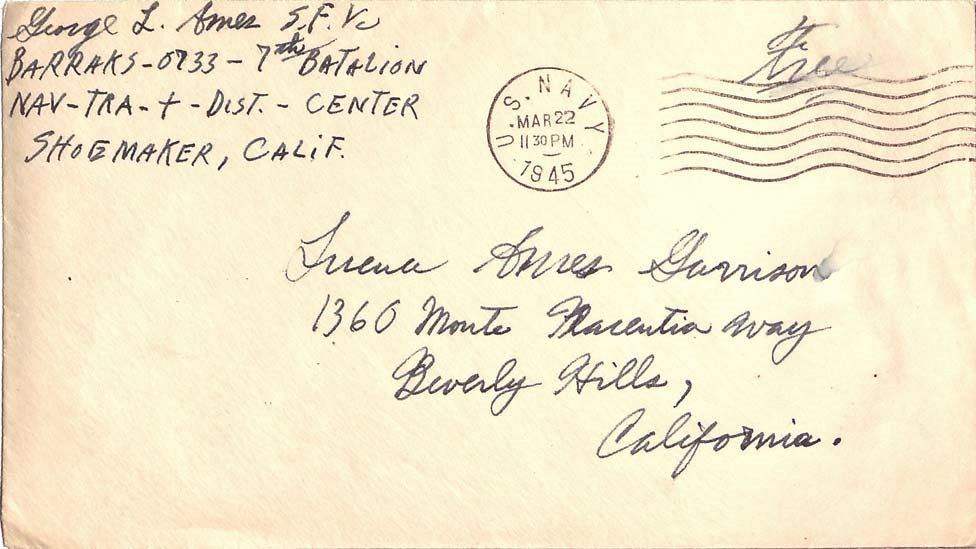 George L. Ames S.F. V.
BARRAKS-0733-7th BATALION
NAV-TRA-+-DIST.- CENTER
SHOEMAKER, CALIF.
U.S. NAVY
MAR 22
11 30 PM
1945
Free
Ames Garrison
1360 Monte Placentia Way
Beverly Hills,
California.